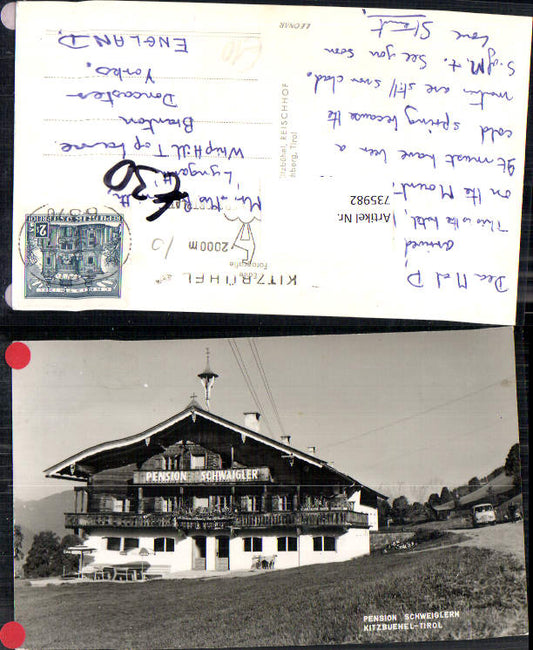 Dear M and D,
arrived!
This is the hotel,
on the Mount.
It must have been a
cold spring because the
mountains are still snow clad.
See you soon
love
Stuart.
LEONAR
Artikel Nr.
735982
Whiphill Top Lane.
Branton
Doncaster
Yorks.
ENGLAND.
€30
10
2000 m
KITZBÜHEL
Echte
Fotografie
tzbühel, REISCHHOF
hberg, Tirol
REPUBLIK ÖSTERREICH
PENSION SCHWAIGLER
PENSION SCHWEIGLERN
KITZBUEHEL-TIROL